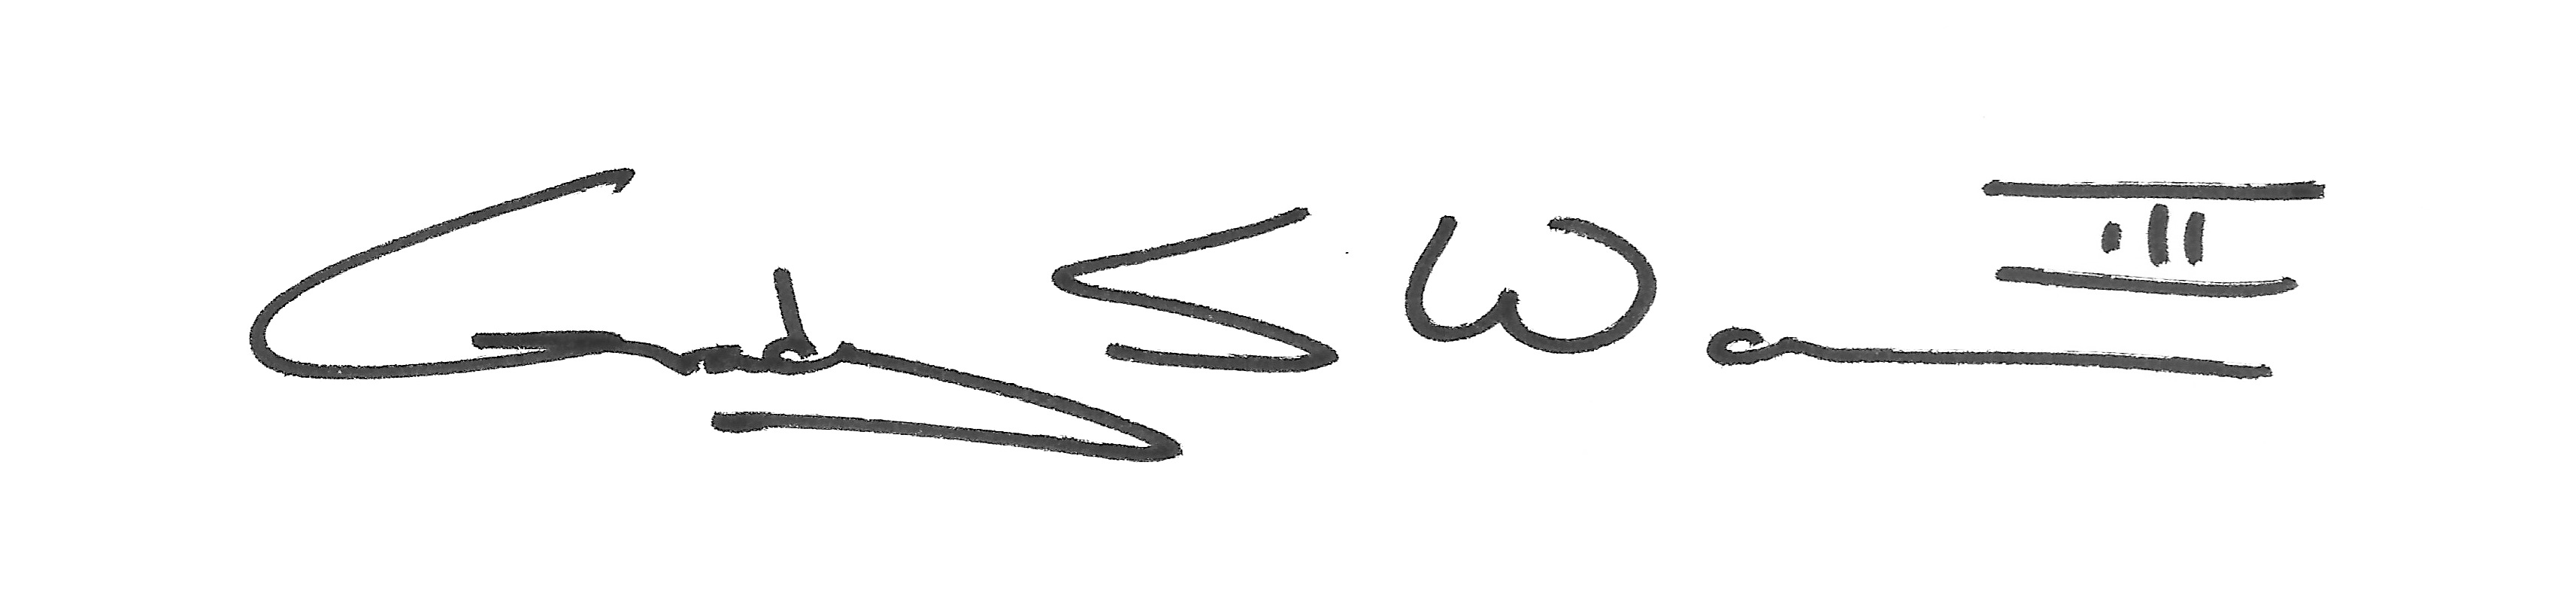 Grady S Wa III